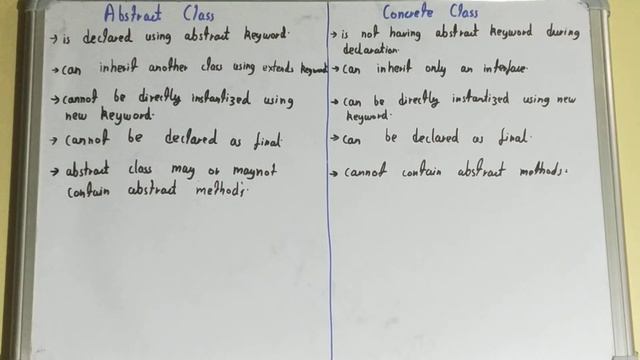 Abstract Class
→ is declared using abstract keyword.
→ can inherit another class using extends keyword
→ cannot be directly instantized using
new keyword.
→ cannot be declared as final.
→ abstract class may or maynot
contain abstract methods.
Concrete Class
→ is not having abstract keyword during
declaration.
→ can inherit only an interface.
→ can be directly instantized using new
keyword.
→ can be declared as final.
→ cannot contain abstract methods.